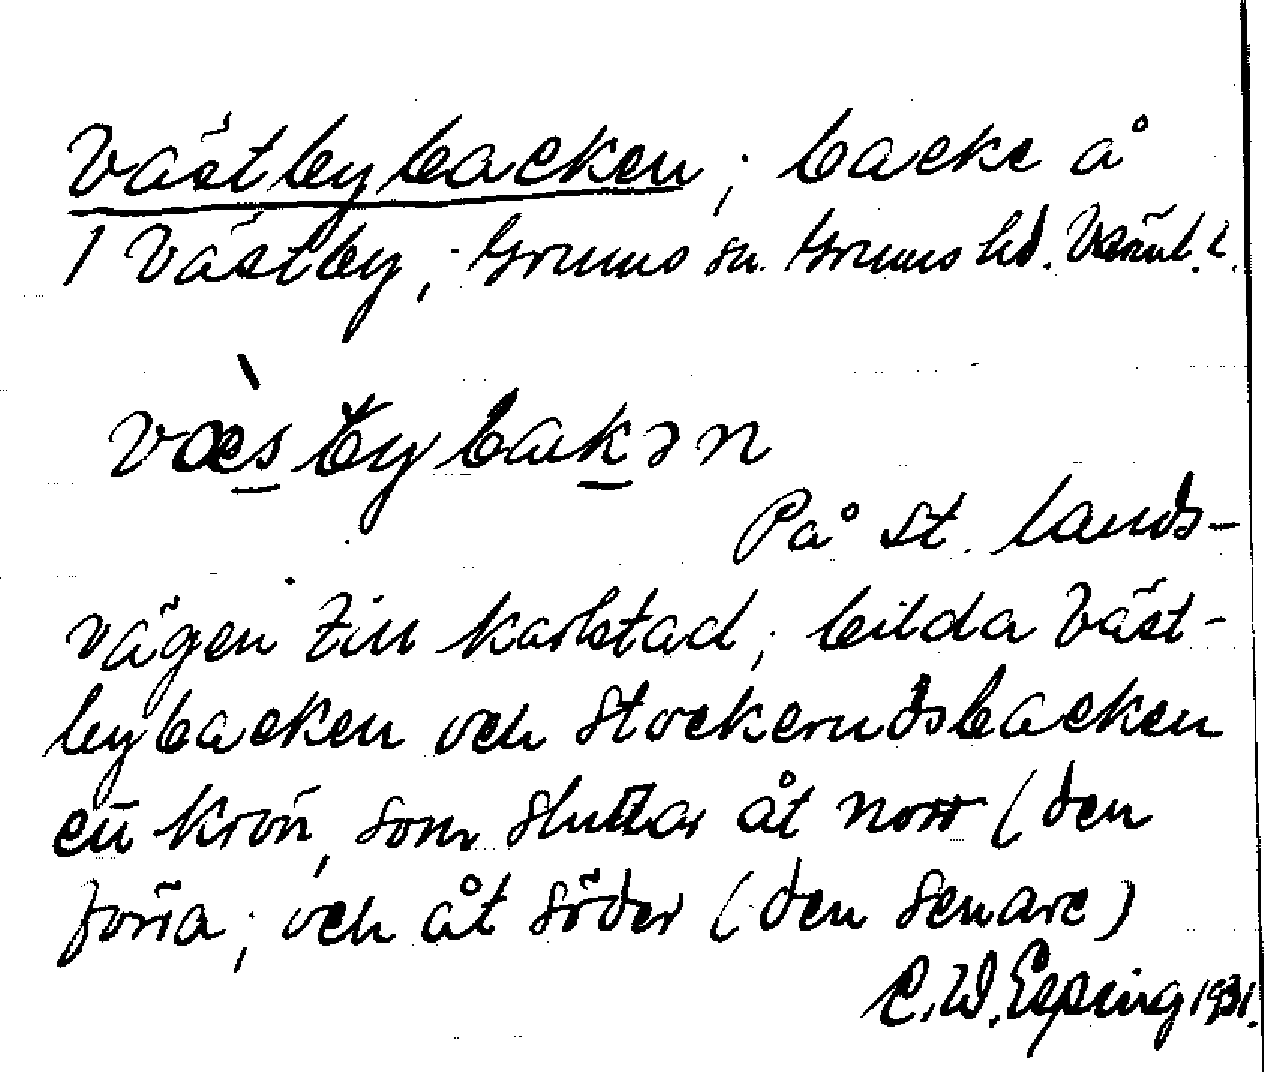 Västbybacken; backe å
1 Västby; Grums sn. Grums hd. Värml. l.
væ̀stbybakən
På st. lands-
vägen till Karlstad; bilda Väst-
bybacken och Stockerudsbacken
ett krön, som sluttar åt norr (den
förra; och åt söder (den senare)
C.W. Epping 1931.